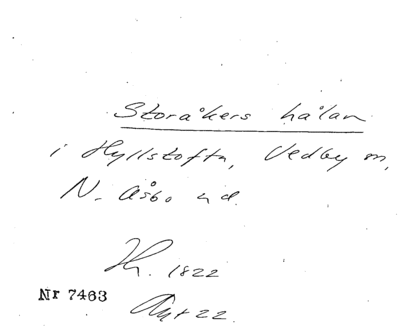 Storåkers hålan
i Hyllstofta, Vedby sn,
N. Åsbo hd.
1822
Nr 7463
22.